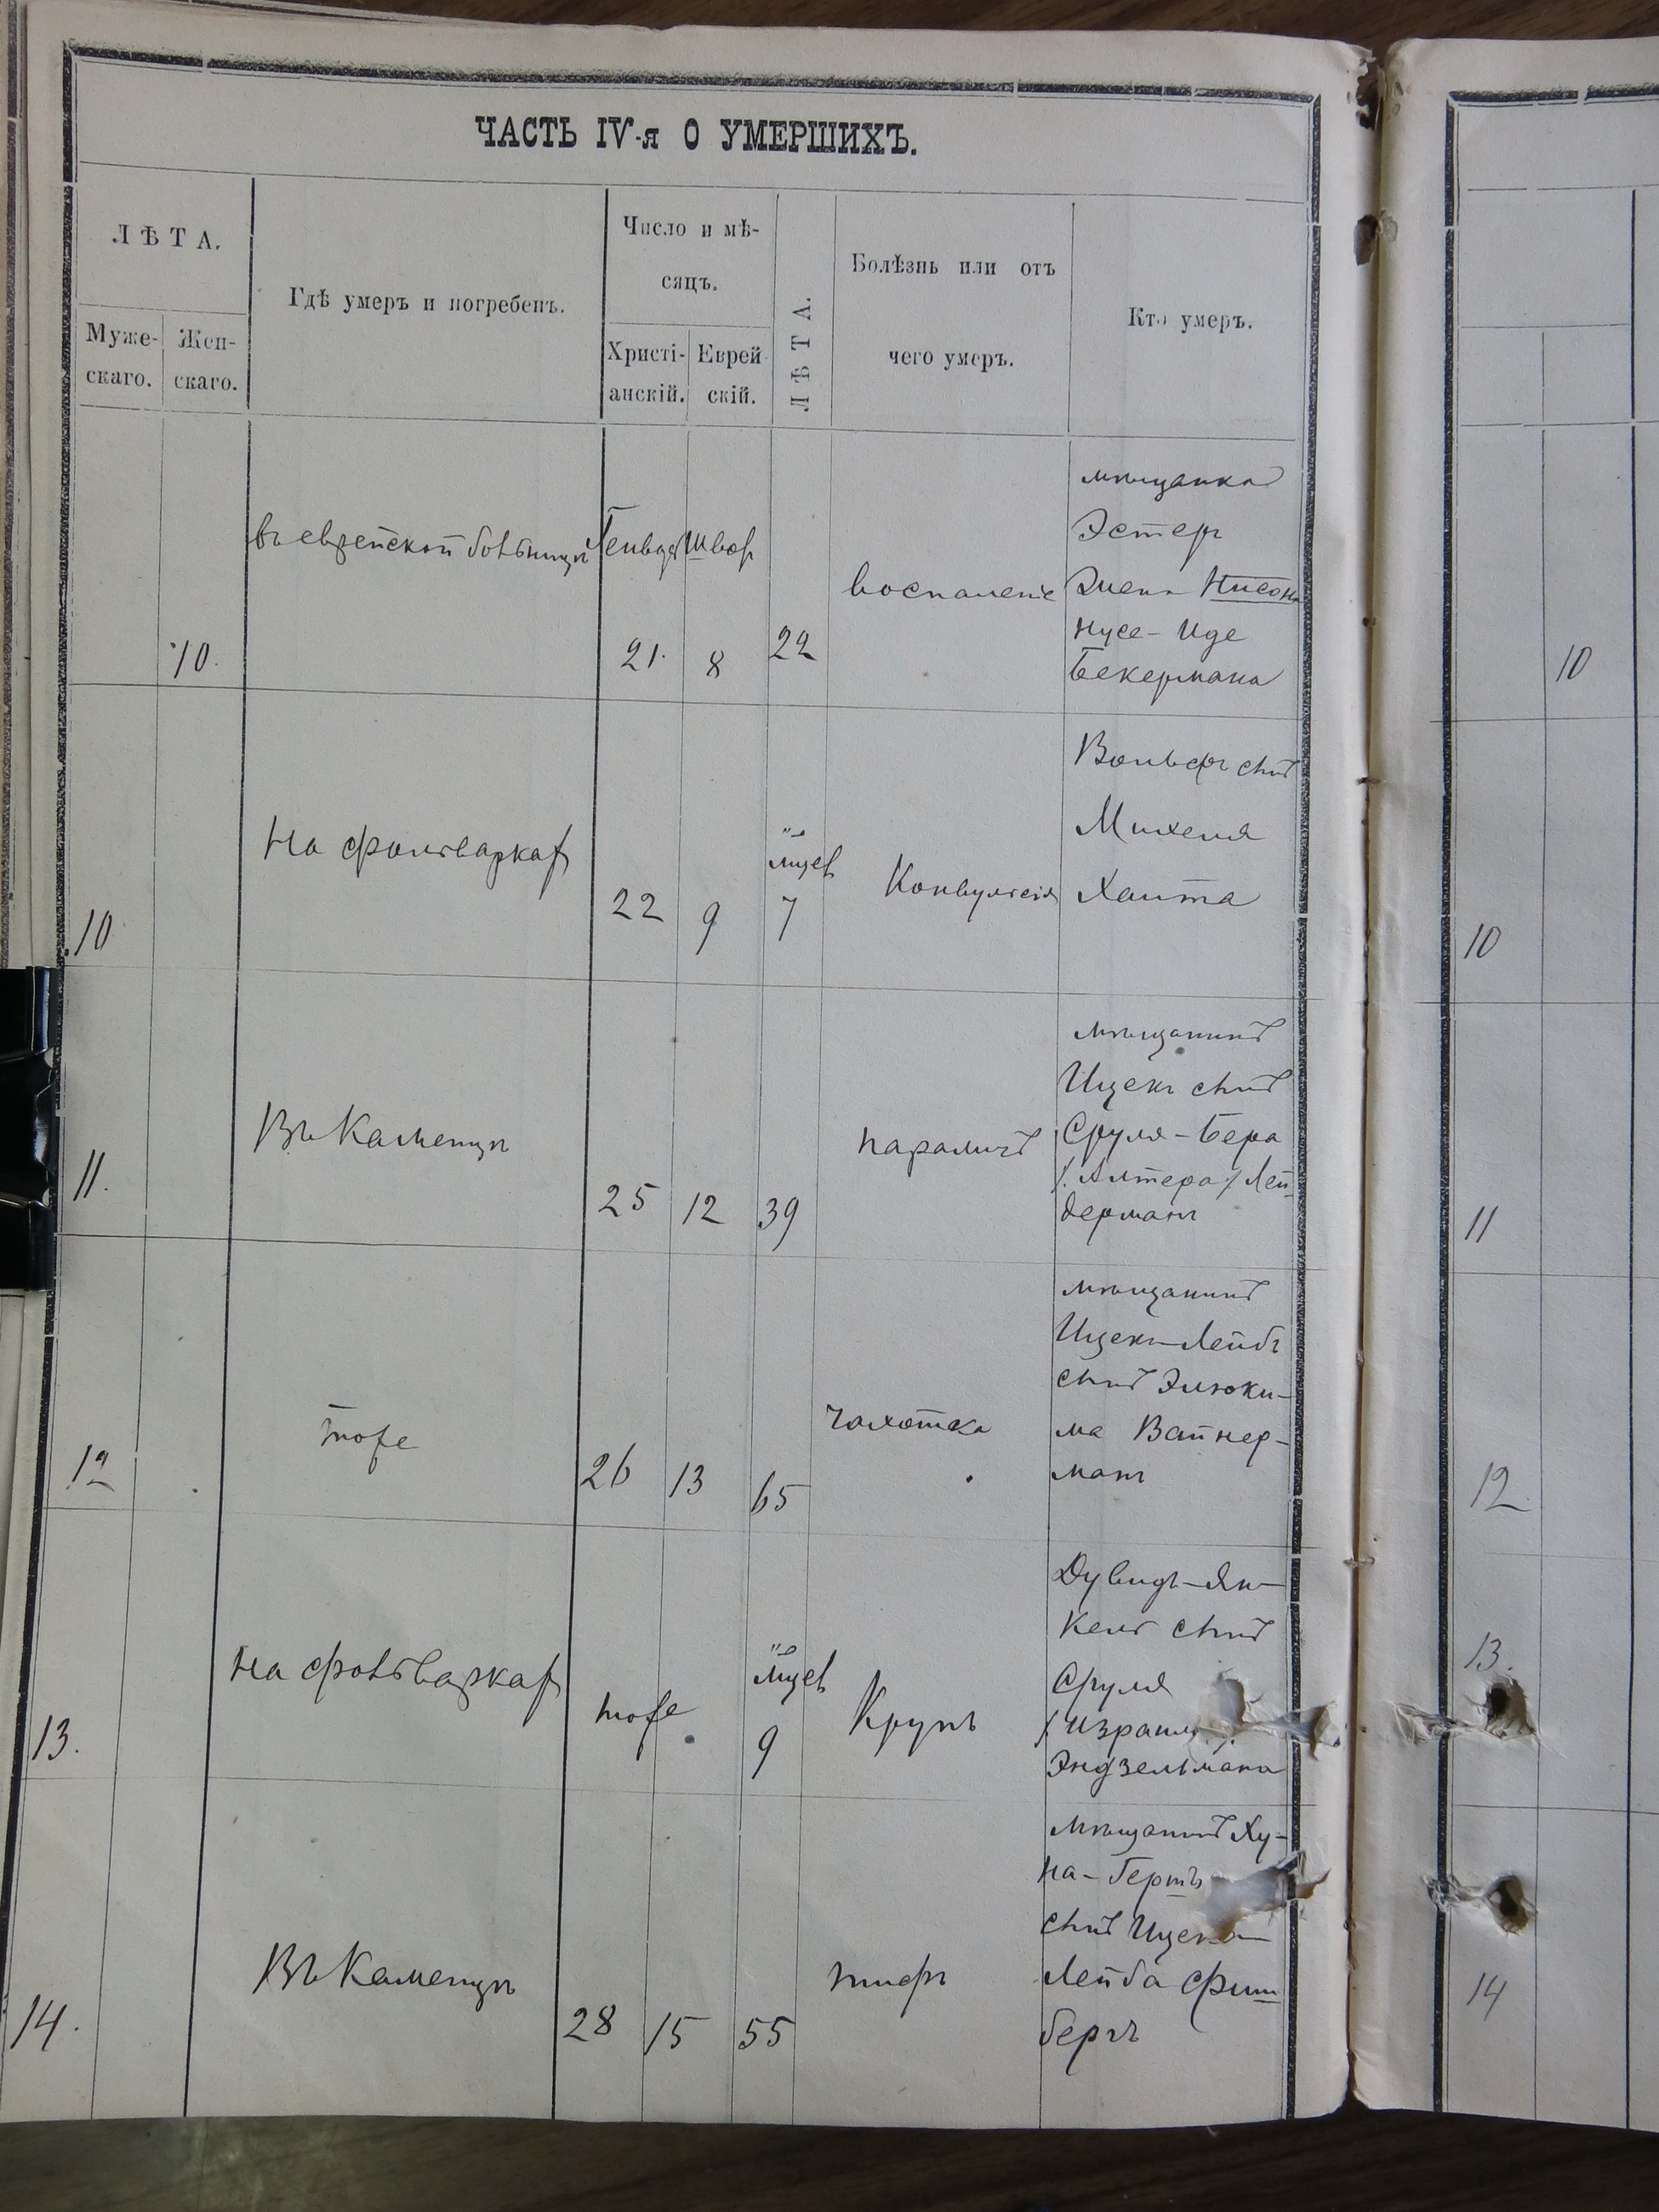 ЧАСТЬ IV-я О УМЕРШИХЪ.
ЛѢТА.
Муже-
скаго.
Жен-
скаго.
Гдѣ умеръ и погребенъ.
Число и мѣ-
сяцъ.
Христі-
анскій.
Еврей-
скій.
ЛѢТА.
Болѣзнь или отъ
чего умеръ.
Кто умеръ.
10.
въ еврейской больницѣ
Генваря
21.
Шват
8
22
воспаленіе
мѣщанка
Эстеръ
жена Нисона
Нусе-Иде
Бекермана
10
10
На фольваркахъ
22
9
мцев
7
Конвульсія
Вольфъ сынъ
Михеля
Хаита
10
11.
Въ Каменцѣ
25
12
39
параличъ
мѣщанинъ
Ицекъ сынъ
Сруля-Бера
/:Алтера:/ Лей-
дерманъ
11
12
тоже
26
13
65
чахотка
мѣщанинъ
Ицекъ-Лейбъ
сынъ Элюки-
ма Вайнер-
манъ
12
13.
На фольваркахъ
тоже
мцев
9
Крупъ
Дувидъ-Ян-
кель сынъ
Сруля
/:Израиля:/
Эндзельмана
13.
14.
Въ Каменцѣ
28
15
55
тифъ
мѣщанинъ Ху-
на-Гершъ
сынъ Ицека-
Лейба Фиш-
бергъ
14